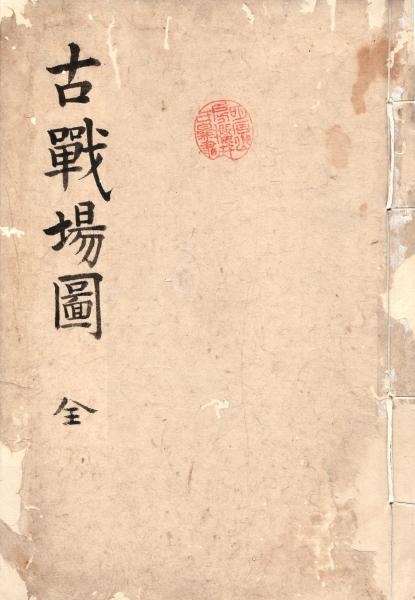 古戰場圖
全